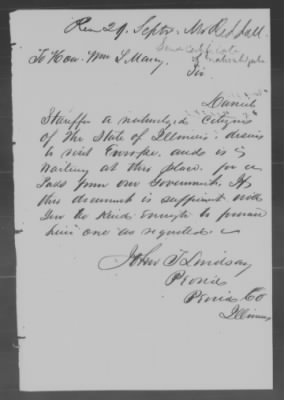 Rec 29. Septr. Mr Reddall
Send Certificate
of naturalization
To Hon. Wm L Marcy.
Sir
Daniel
Stauffer a naturalized Citizen
of the State of Illinois. desires
to visit Europe, and is
waiting at this place for a
Pass from our Government. If
this document is sufficient will
you be kind enough to procure
him one as requested.
John T Lindsay
Peoria
Peoria Co
Illinois